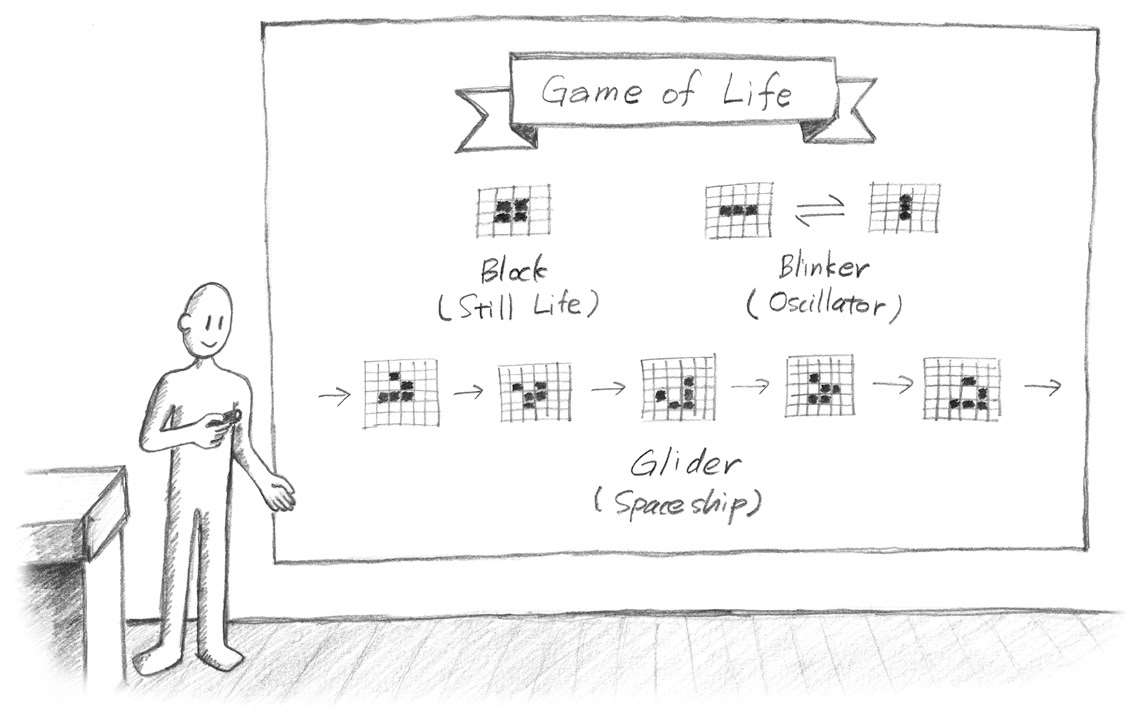 Game of Life
Block
(Still Life)
Blinker
(Oscillator)
Glider
(Spaceship)